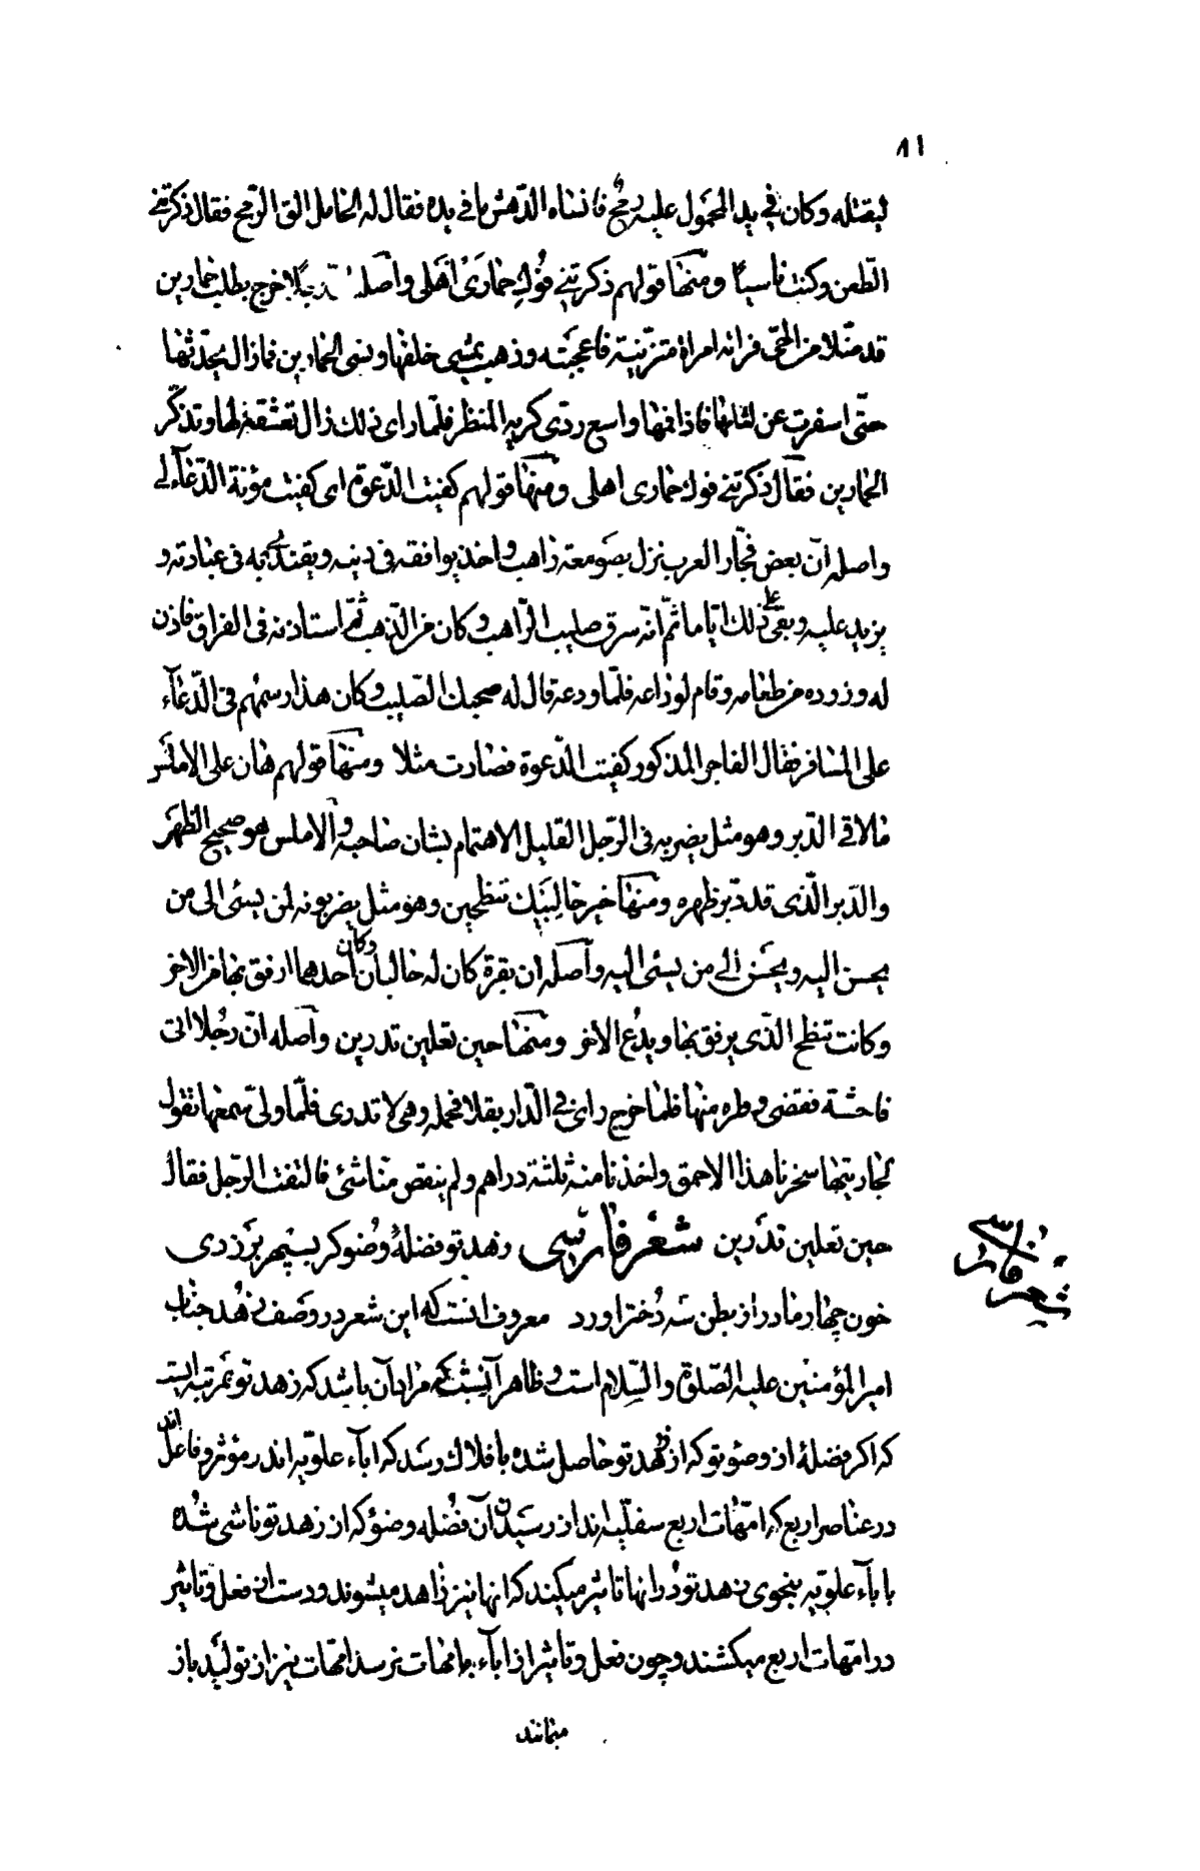 ٨١
ليقتله وكان في يد المحمول عليه رمح فانساه الدّهش ما في يده فقال له الحامل الق الرّمح فقال ذكرتني
الطّعن وكنت ناسيًا ومنها قولهم ذكرتني فُوكِ حمارَىْ اَهلى وأصله انّ رجلا خرج يطلب حمارين
قد ضلّا من الحىّ فراى امراة متزيّنة فاعجبته وذهب يمشى خلفها ونسى الحمارين فمازال يحدّثها
حتّى اسفرت عن لثامها فاذا فمها واسع ردّى كريه المنظر فلمّا راى ذلك زال تعشّقه لها وتذكّر
الحمارين فقال ذكرتني فوك حمارى اهلى ومنها قولهم كفيت الدّعوة اى كفيت مؤنة الدّعآء لي
واصله انّ بعض فجّار العرب نزل بصَومعة راهب واخذ يوافقه فى دينه ويقتدى به فى عبادته و
يزيد عليه وبقى على ذلك ايّاما ثمّ انّه سرق صليب الرّاهب وكان من الذّهب ثمّ استاذنه فى الفراق فاذن
له وزوده من طعامه وقام لوداعه فلمّا ودعه قال له صحبك الصّليب وكان هذا رسمهم فى الدّعآء
على المسافر فقال الفاجر المذكور كفيت الدّعوة فصارت مثلا ومنها قولهم هان على الاملس
مالاقى الدّبر وهو مثل يضرب فى الرّجل القليل الاهتمام بشان صاحبه والأملس هو صحيح الظّهر
والدّبر الّذى قد دبر ظهره ومنها خير حالِبَيْكِ تنطحين وهو مثل يضربونه لمن يسئى الى من
يحسن اليه ويحسن الى من يسئى اليه وأصله ان بقرة كان له حالبان وكان احدهما ارفق بها من الاخر
وكانت تنطح الّذى يرفق بها ويدع الاخر ومنها حين تعلين تدرين وأصله انّ رجُلا اتى
فاحشة فقضى وطره منها فلما خرج راى فى الدّار بقلا فحمله وهى لا تدرى فلمّا ولّى سمعها تقول
لجاريتها سخرنا هذا الاحمق واخذنا منه ثلثة دراهم ولم ينقص منّا شئى فالتفت الرّجل فقال
حين تعلين تدرين شعر فارسى زهد تو فضلهٔ وضو كر بسپهر برزدى
خون چهار مادر از بطن سه دختر اورد معروف انست كه اين شعر در وصف زهد جناب
امير المؤمنين عليه الصّلوة والسّلام است وظاهر آنست كه مراد آن باشد كه زهد تو بمرتبه ايست
كه اكر فضلهٔ از وضو تو كه از زهد تو حاصل شده با فلاك رسد كه اباء علويه اند ر مؤثر وفاعل اند
در عناصر اربع كه امّهات اربع سفليّه اند از رسيدن آن فضله وضو كه از زهد تو ناشى شده
با بآء علويه بنحوى زهد تو در انها تاثير ميكند كه انها نيز زاهد ميشوند ودست از فعل وتاثير
در امّهات اربع ميكشند وچون فعل وتاثير از اباء بامهات نرسد امّهات نيز از توليد باز
ميمانند
شعر فارسى